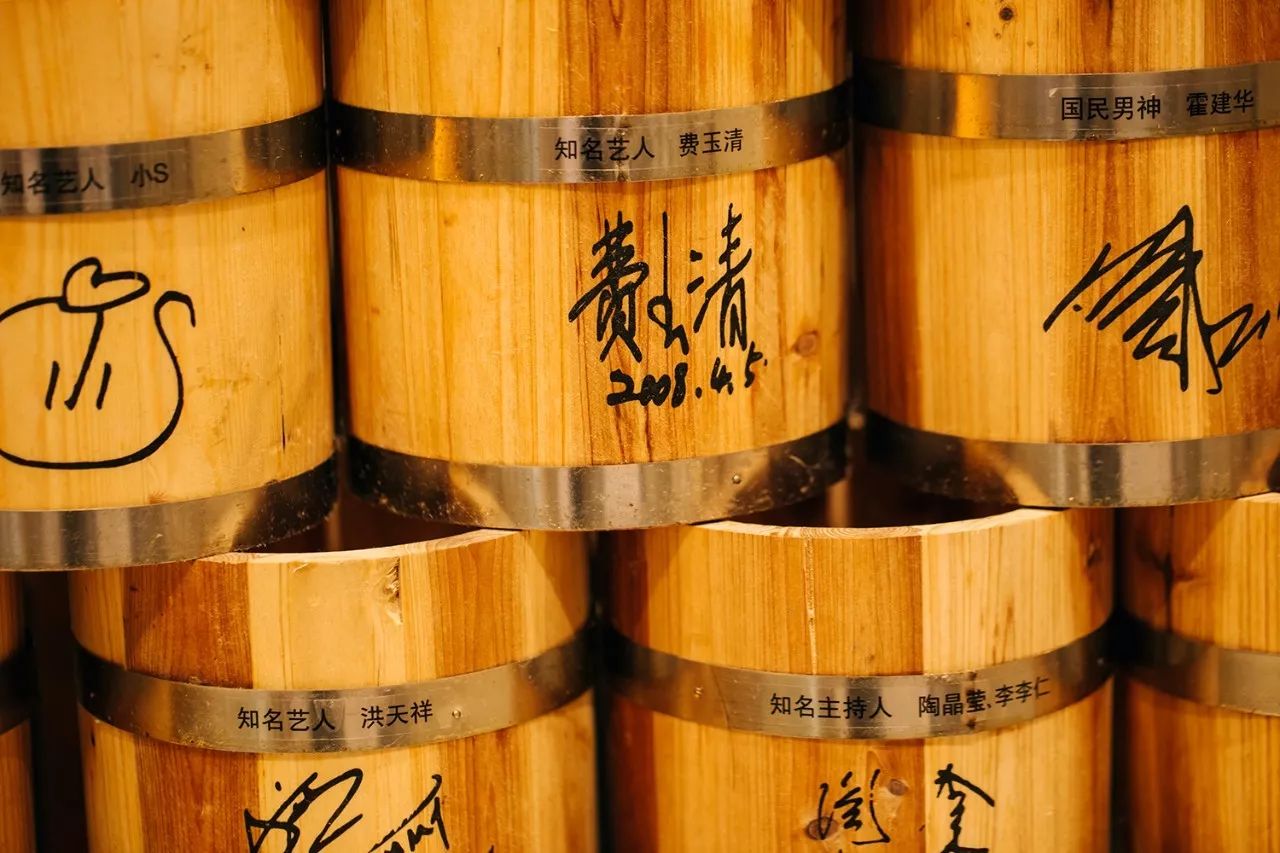 知名艺人 小S
知名艺人 费玉清
费玉清
2008.4.5.
国民男神 霍建华
知名艺人 洪天祥
知名主持人 陶晶莹、李李仁
陶 李